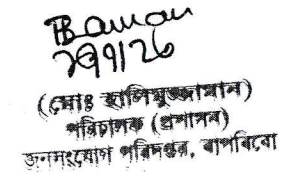 (মোঃ হালিমুজ্জামান)
পরিচালক (প্রশাসন)
জনসংযোগ পরিদপ্তর, বাপবিবো